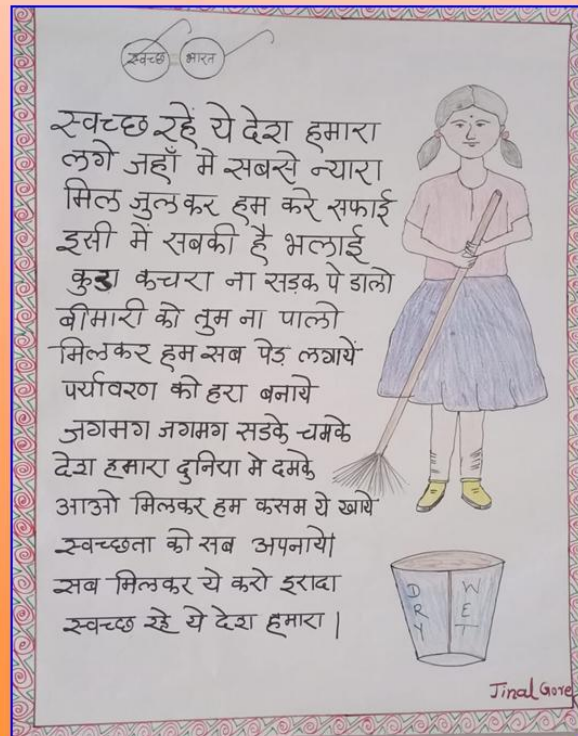 स्वच्छ भारत
स्वच्छ रहें ये देश हमारा
लगे जहाँ मे सबसे न्यारा
मिल जुलकर हम करे सफाई
इसी में सबकी है भलाई
कुडा कचरा ना सड़क पे डालो
बीमारी को तुम ना पालो
मिलकर हम सब पेड़ लगायें
पर्यावरण को हरा बनाये
जगमग जगमग सडके चमके
देश हमारा दुनिया मे दमके
आओ मिलकर हम कसम ये खाये
स्वच्छता को सब अपनाये।
सब मिलकर ये करो इरादा
स्वच्छ रहे ये देश हमारा |
DRY WET
Jinal Gore